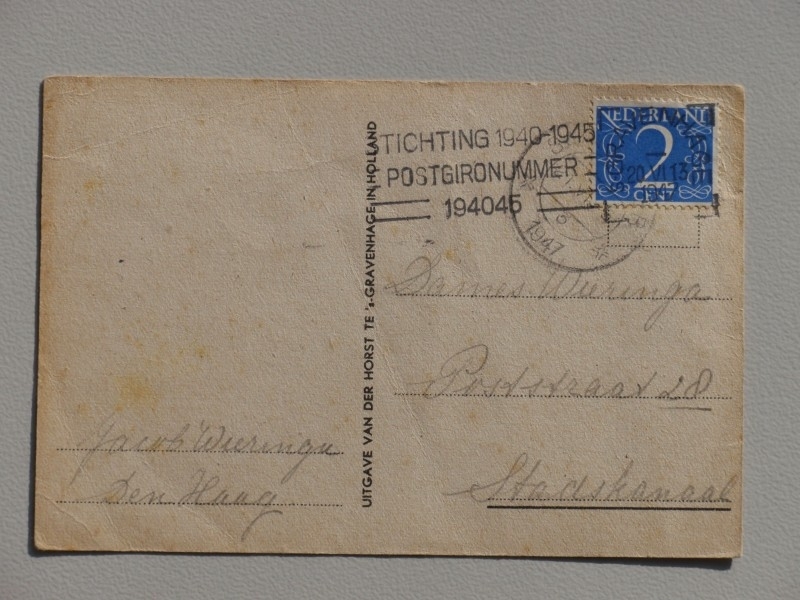 TICHTING 1940-1945
POSTGIRONUMMER
194045
NEDERLAND
2
CENT
20 VI 13
1947
1947
UITGAVE VAN DER HORST TE 's-GRAVENHAGE IN HOLLAND
Dames Wieringa
Poststraat 28
Stadskanaal
Jacob Wieringa
Den Haag